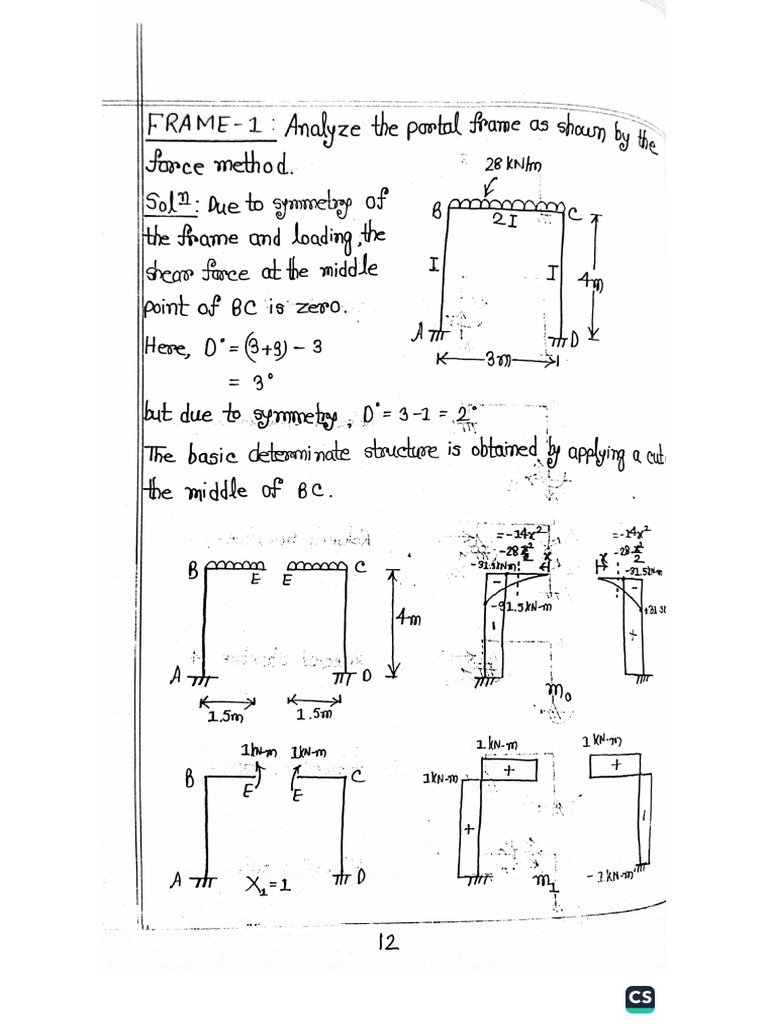 FRAME-1: Analyze the portal frame as shown by the
force method.
28 kN/m
Solⁿ: Due to symmetry of
the frame and loading, the
shear force at the middle
point of BC is zero.
B
2I
C
I
I
4m
A
D
3m
Here, D° = (3+3) - 3
= 3°
but due to symmetry, D° = 3-1 = 2°
The basic determinate structure is obtained by applying a cut
the middle of BC.
B
E
E
C
4m
A
D
1.5m
1.5m
= -14x²
-28 x²/2
-31.5kN-m
x
-31.5 kN-m
-
m₀
= -14x²
-28 x²/2
x
-31.5kN-m
-
+31.5k
+
1kN-m
1kN-m
B
E
E
C
A
X₁=1
D
1 kN-m
1 kN-m
1kN-m
+
+
+
-
m₁
-1kN-m
12
CS